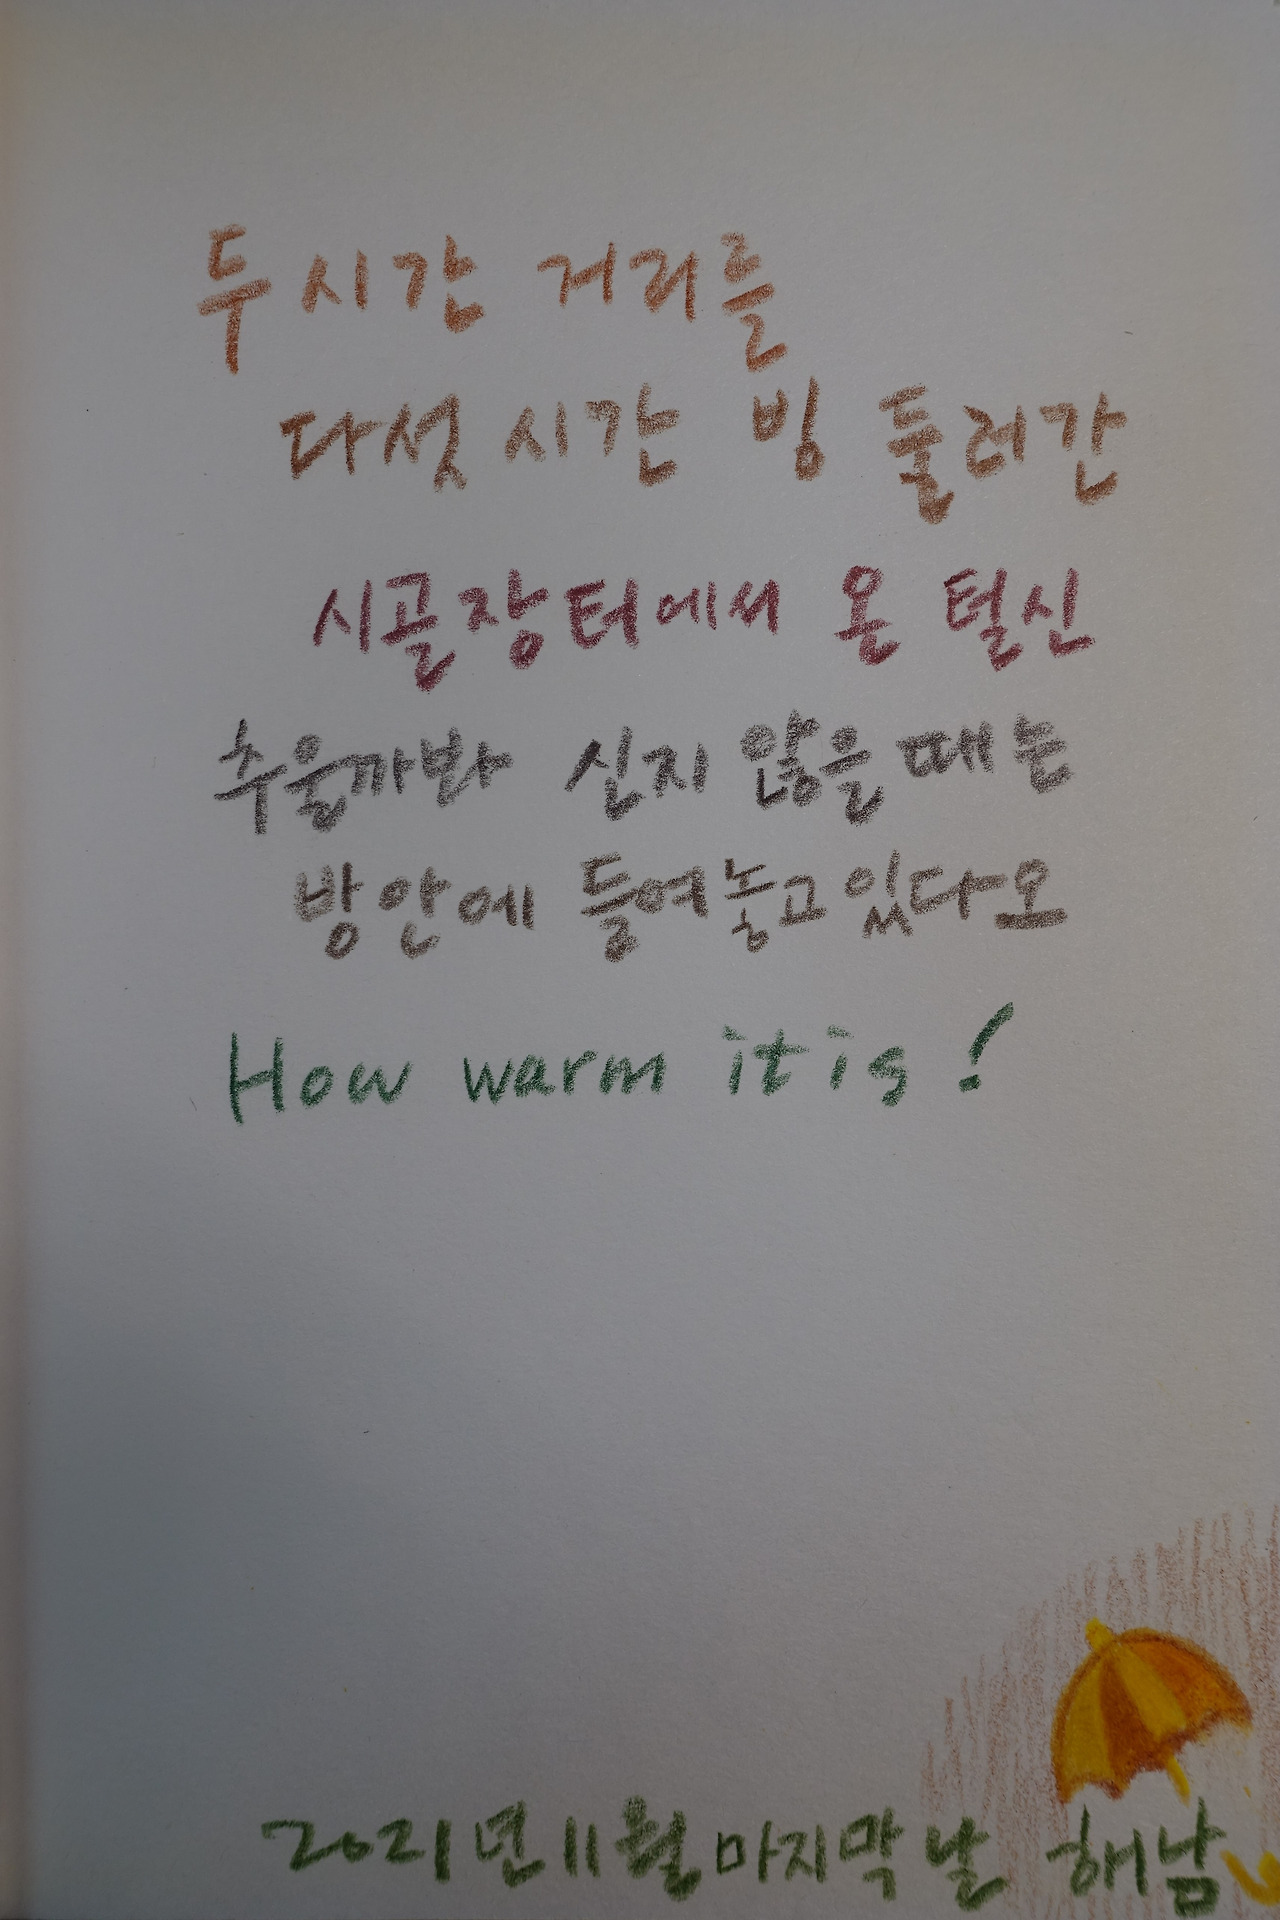 두시간 거리를
다섯시간 빙 둘러간
시골장터에서 온 털신
추울까봐 신지 않을때는
방안에 들여놓고있다오
How warm it is!
2021년11월마지막날 해남